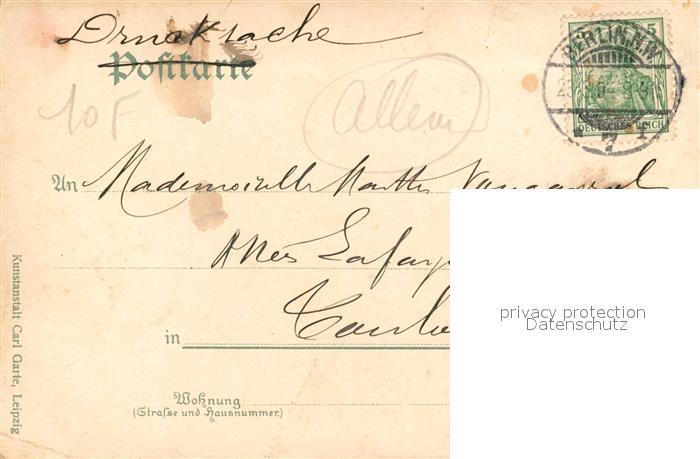 Drucksache
Postkarte
BERLIN. N.W.
5
DEUTSCHES REICH
7
10 F
Allem
An Mademoiselle Marthe
Lafay
in
Wohnung
(Straße und Hausnummer)
Kunstanstalt Carl Garte, Leipzig
privacy protection
Datenschutz